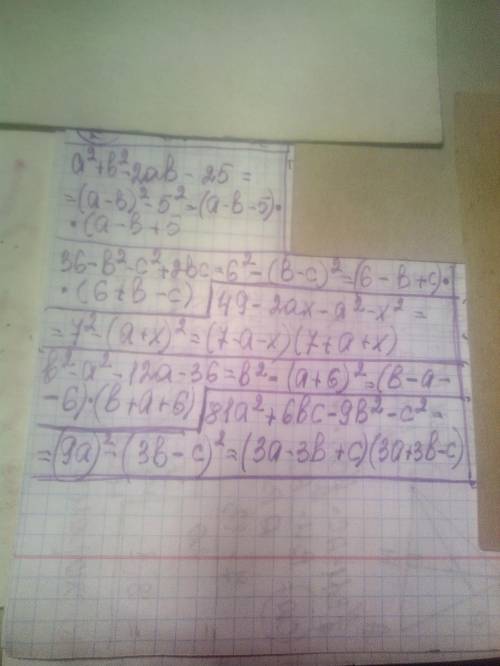 a²+b²-2ab-25=
=(a-b)²-5²=(a-b-5)·
·(a-b+5
36-b²-c²+2bc=6²-(b-c)²=(6-b+c)·
·(6+b-c)
49-2ax-a²-x²=
=7²-(a+x)²=(7-a-x)(7+a+x)
b²-a²-12a-36=b²-(a+6)²=(b-a-
-6)·(b+a+6)
81a²+6bc-9b²-c²=
=(9a)²-(3b-c)²=(3a-3b+c)(3a+3b-c)